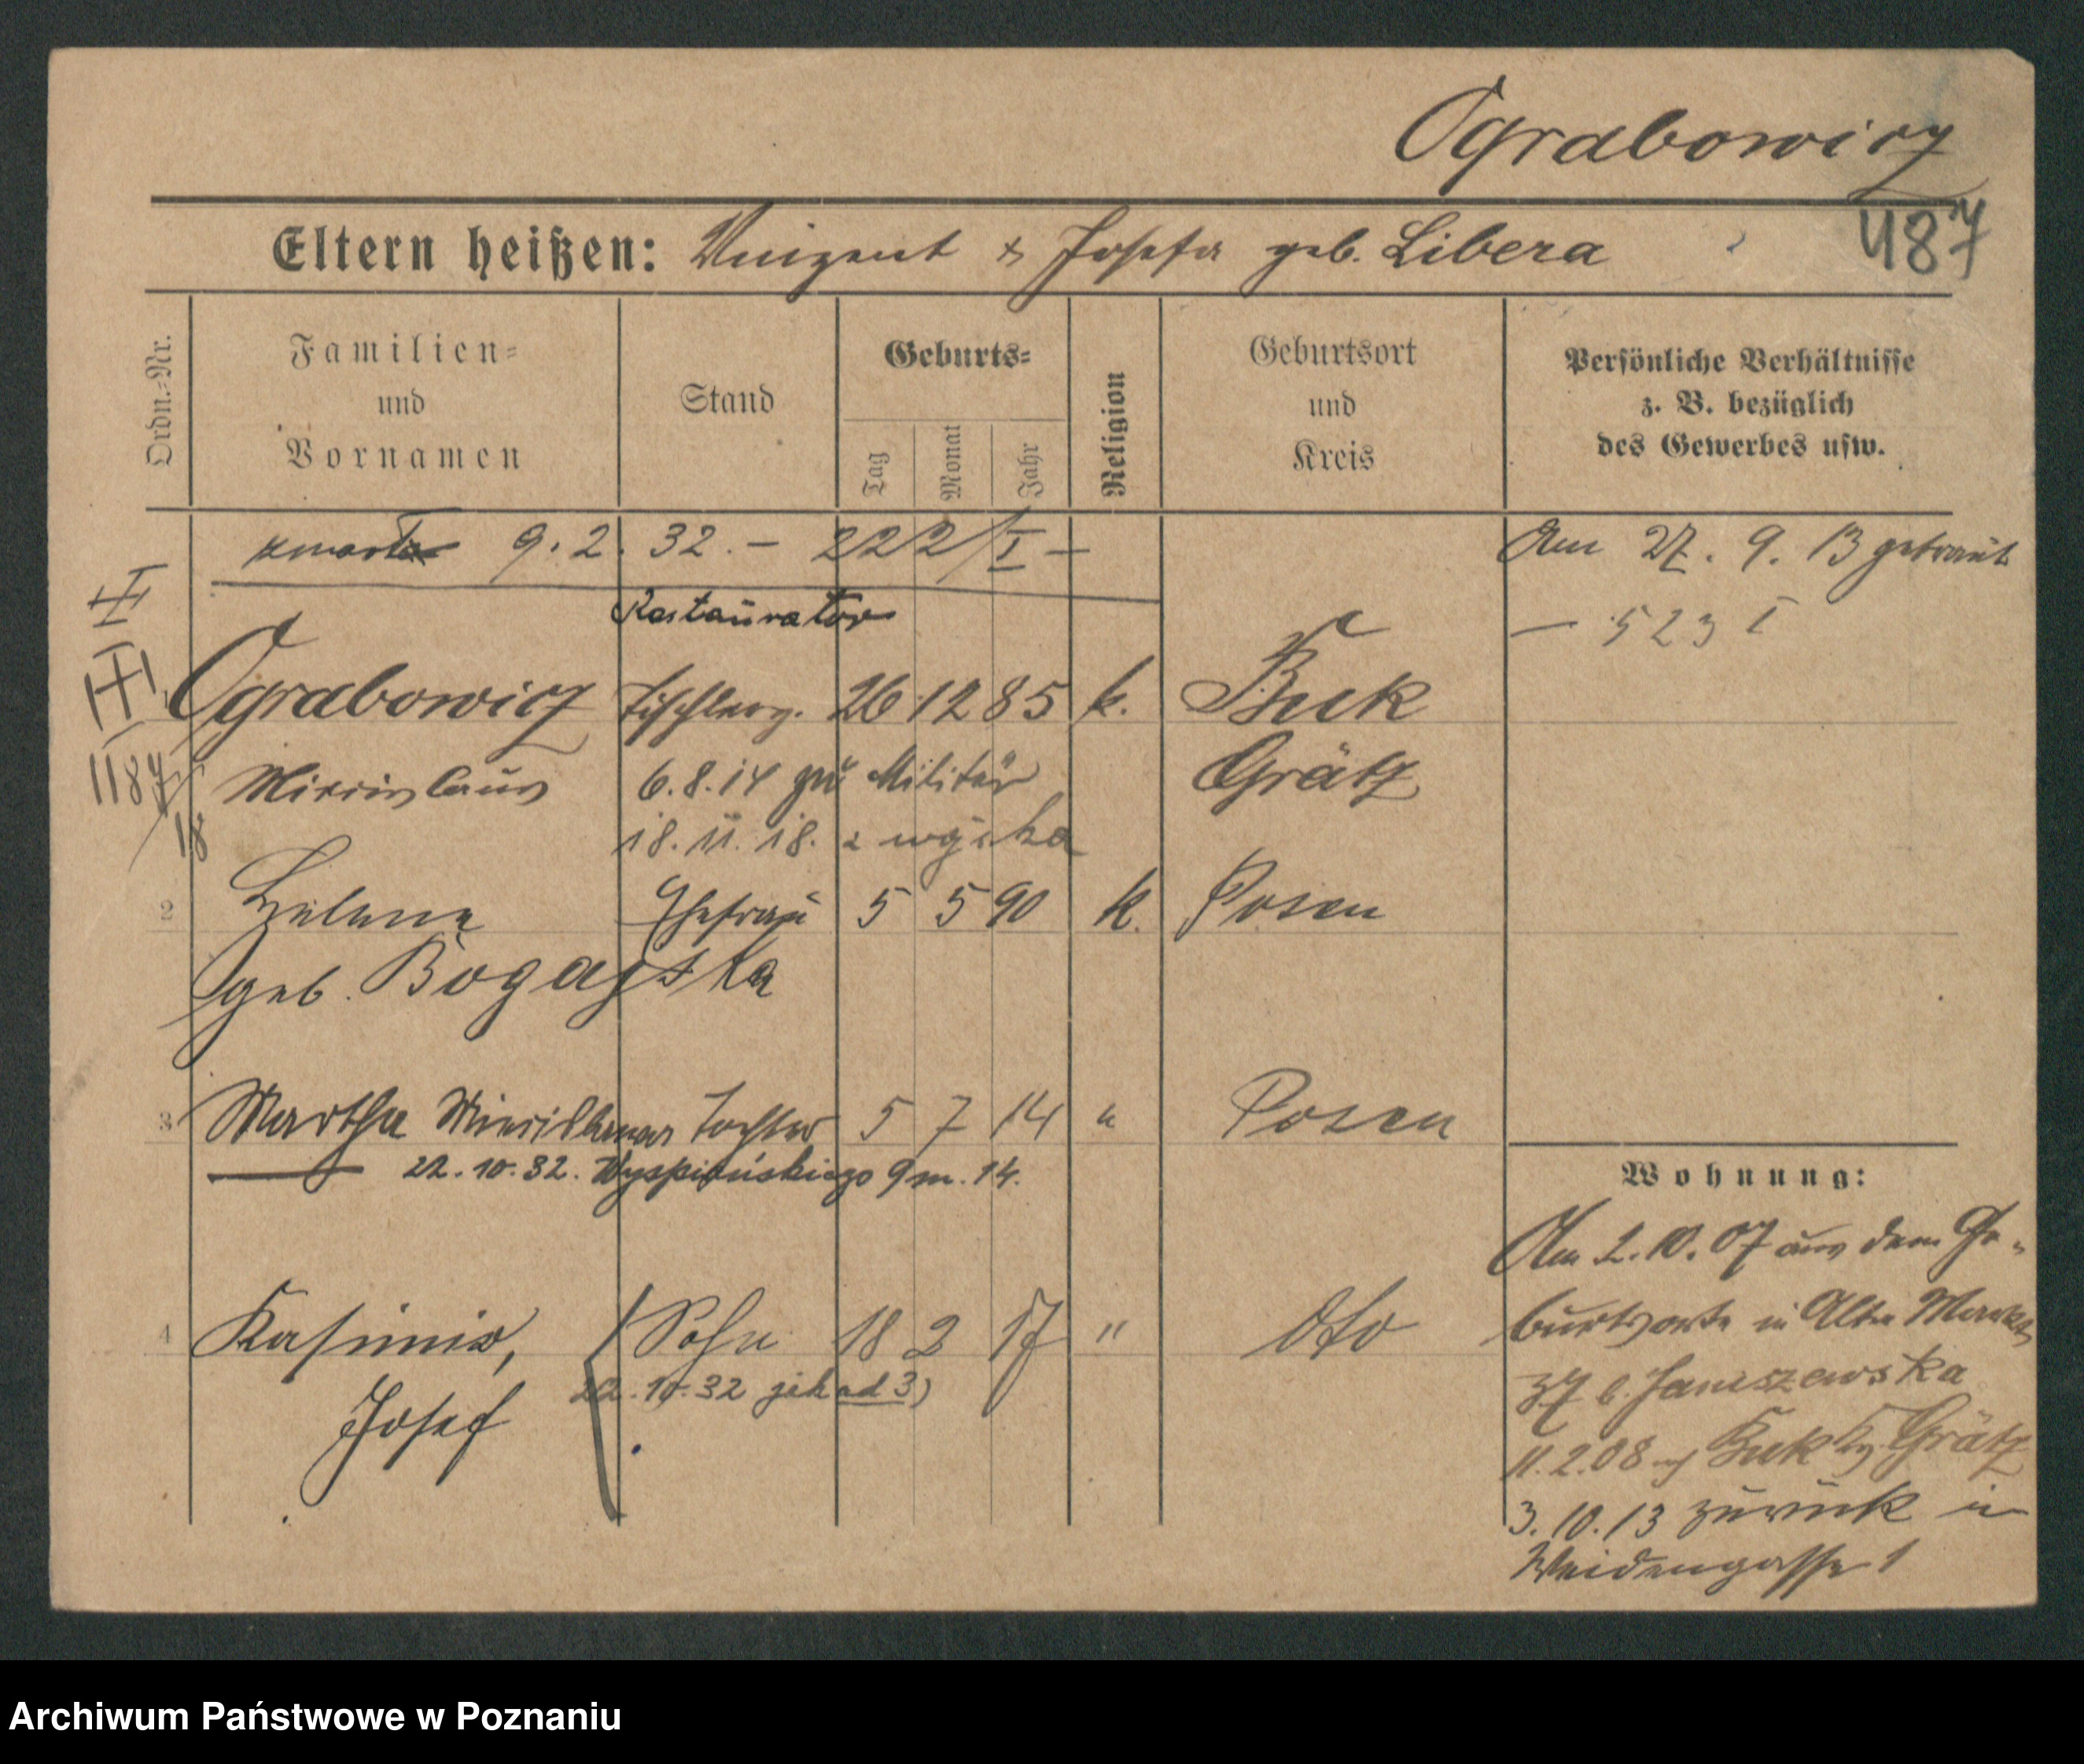 Ograbowicz
487
Eltern heißen: Vinzent & Josefa geb. Libera
Ordn.=Nr.
Familien=
und
Vornamen
Stand
Geburts=
Tag
Monat
Jahr
Religion
Geburtsort
und
Kreis
Persönliche Verhältnisse
z. B. bezüglich
des Gewerbes usw.
zmarła 9.2.32. – 222/I –
Am 27. 9. 13 getraut
– 523 I
Restaurator
Ograbowicz Tischlerg. 26 12 85 k. Buk
1187/18
6.8.14 zum Militär Grätz
18.11.18. z wojska
2 Helene Ehefrau 5 5 90 k. Posen
geb. Bogajska
3 Martha Tochter 5 7 14 " Posen
22.10.32. Wyspiańskiego 9 m. 14.
Wohnung:
4 Kasimir, Sohn 18 2 17 " dto
22.10.32 jak ad 3)
Josef
Am 2.10.07 aus dem Ge-
burtsorte in Alter Markt
37 b. Janiszewska
11.2.08 Buk Grätz
3.10.13 zurück in
Weidengasse 1
Archiwum Państwowe w Poznaniu